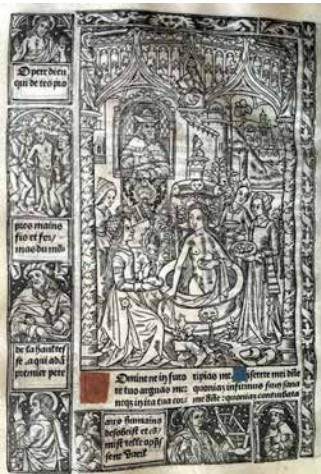 O pere dieu
qui de tes pro
pres mains
fis et for/
mas du mō
de la haultes
se. a qui adā
premier pere
Omine ne in furo
re tuo arguas me:
neqz in ira tua cor/
ripias me. Miserere mei dñe
quoniam infirmus sum sana
me dñe quoniam conturbata
aux humains
desobeist et cō